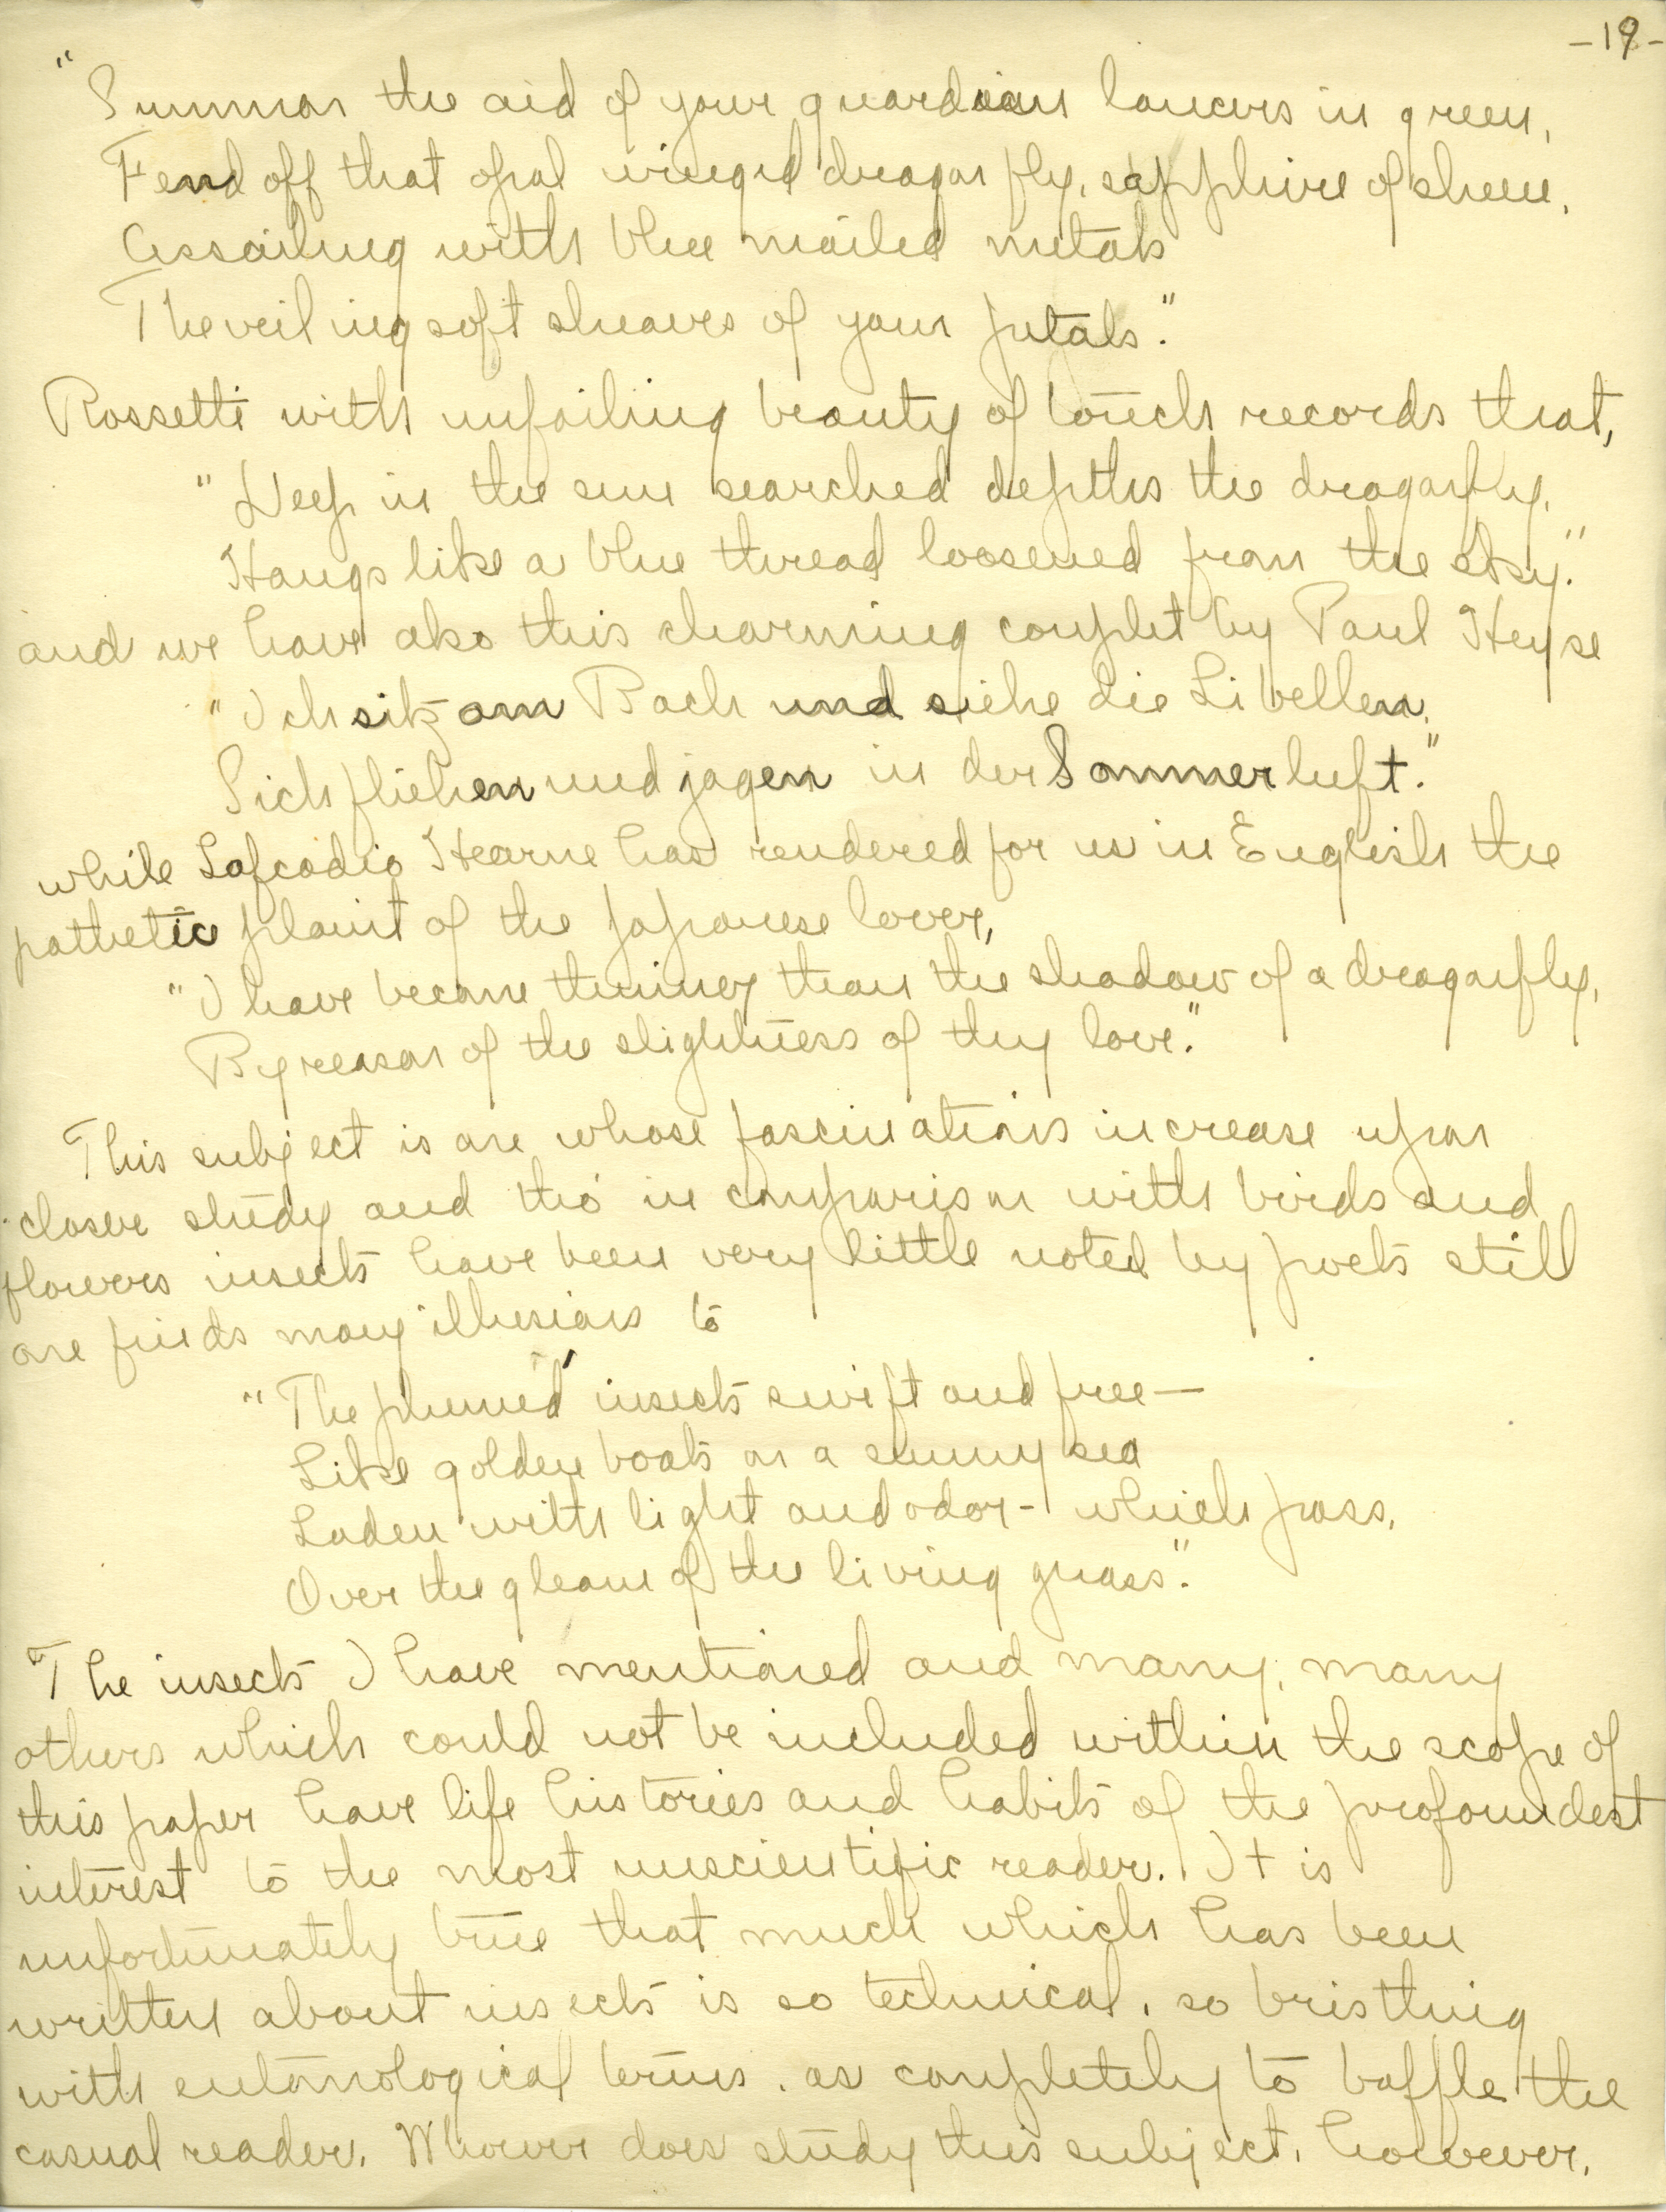 -19-
"Summon the aid of your guardian lancers in green,
Fend off that opal winged dragon fly, sapphire of sheen,
Assailing with blue mailed metals
The veiling soft sheaves of your petals."
Rossetti with unfailing beauty of touch records that,
"Deep in the sun searched depths the dragonfly,
Hangs like a blue thread loosened from the sky."
and we have also this charming couplet by Paul Heyse
"Ich sitz am Bach und siehe die Libellen,
Sich fliehen und jagen in der Sommerluft."
while Lafcadio Hearne has rendered for us in English the
pathetic plaint of the Japanese lover,
"I have become thinner than the shadow of a dragonfly,
By reason of the slightness of thy love."
This subject is one whose fascinations increase upon
closer study and tho' in comparison with birds and
flowers insects have been very little noted by poets still
one finds many illusions to
"The plumed insects swift and free—
Like golden boats on a sunny sea
Laden with light and odor - which pass,
Over the gleam of the living grass".
The insects I have mentioned and many, many
others which could not be included within the scope of
this paper have life histories and habits of the profoundest
interest to the most unscientific reader. It is
unfortunately true that much which has been
written about insects is so technical, so bristling
with entomological terms, as completely to baffle the
casual reader. Whoever does study this subject, however,